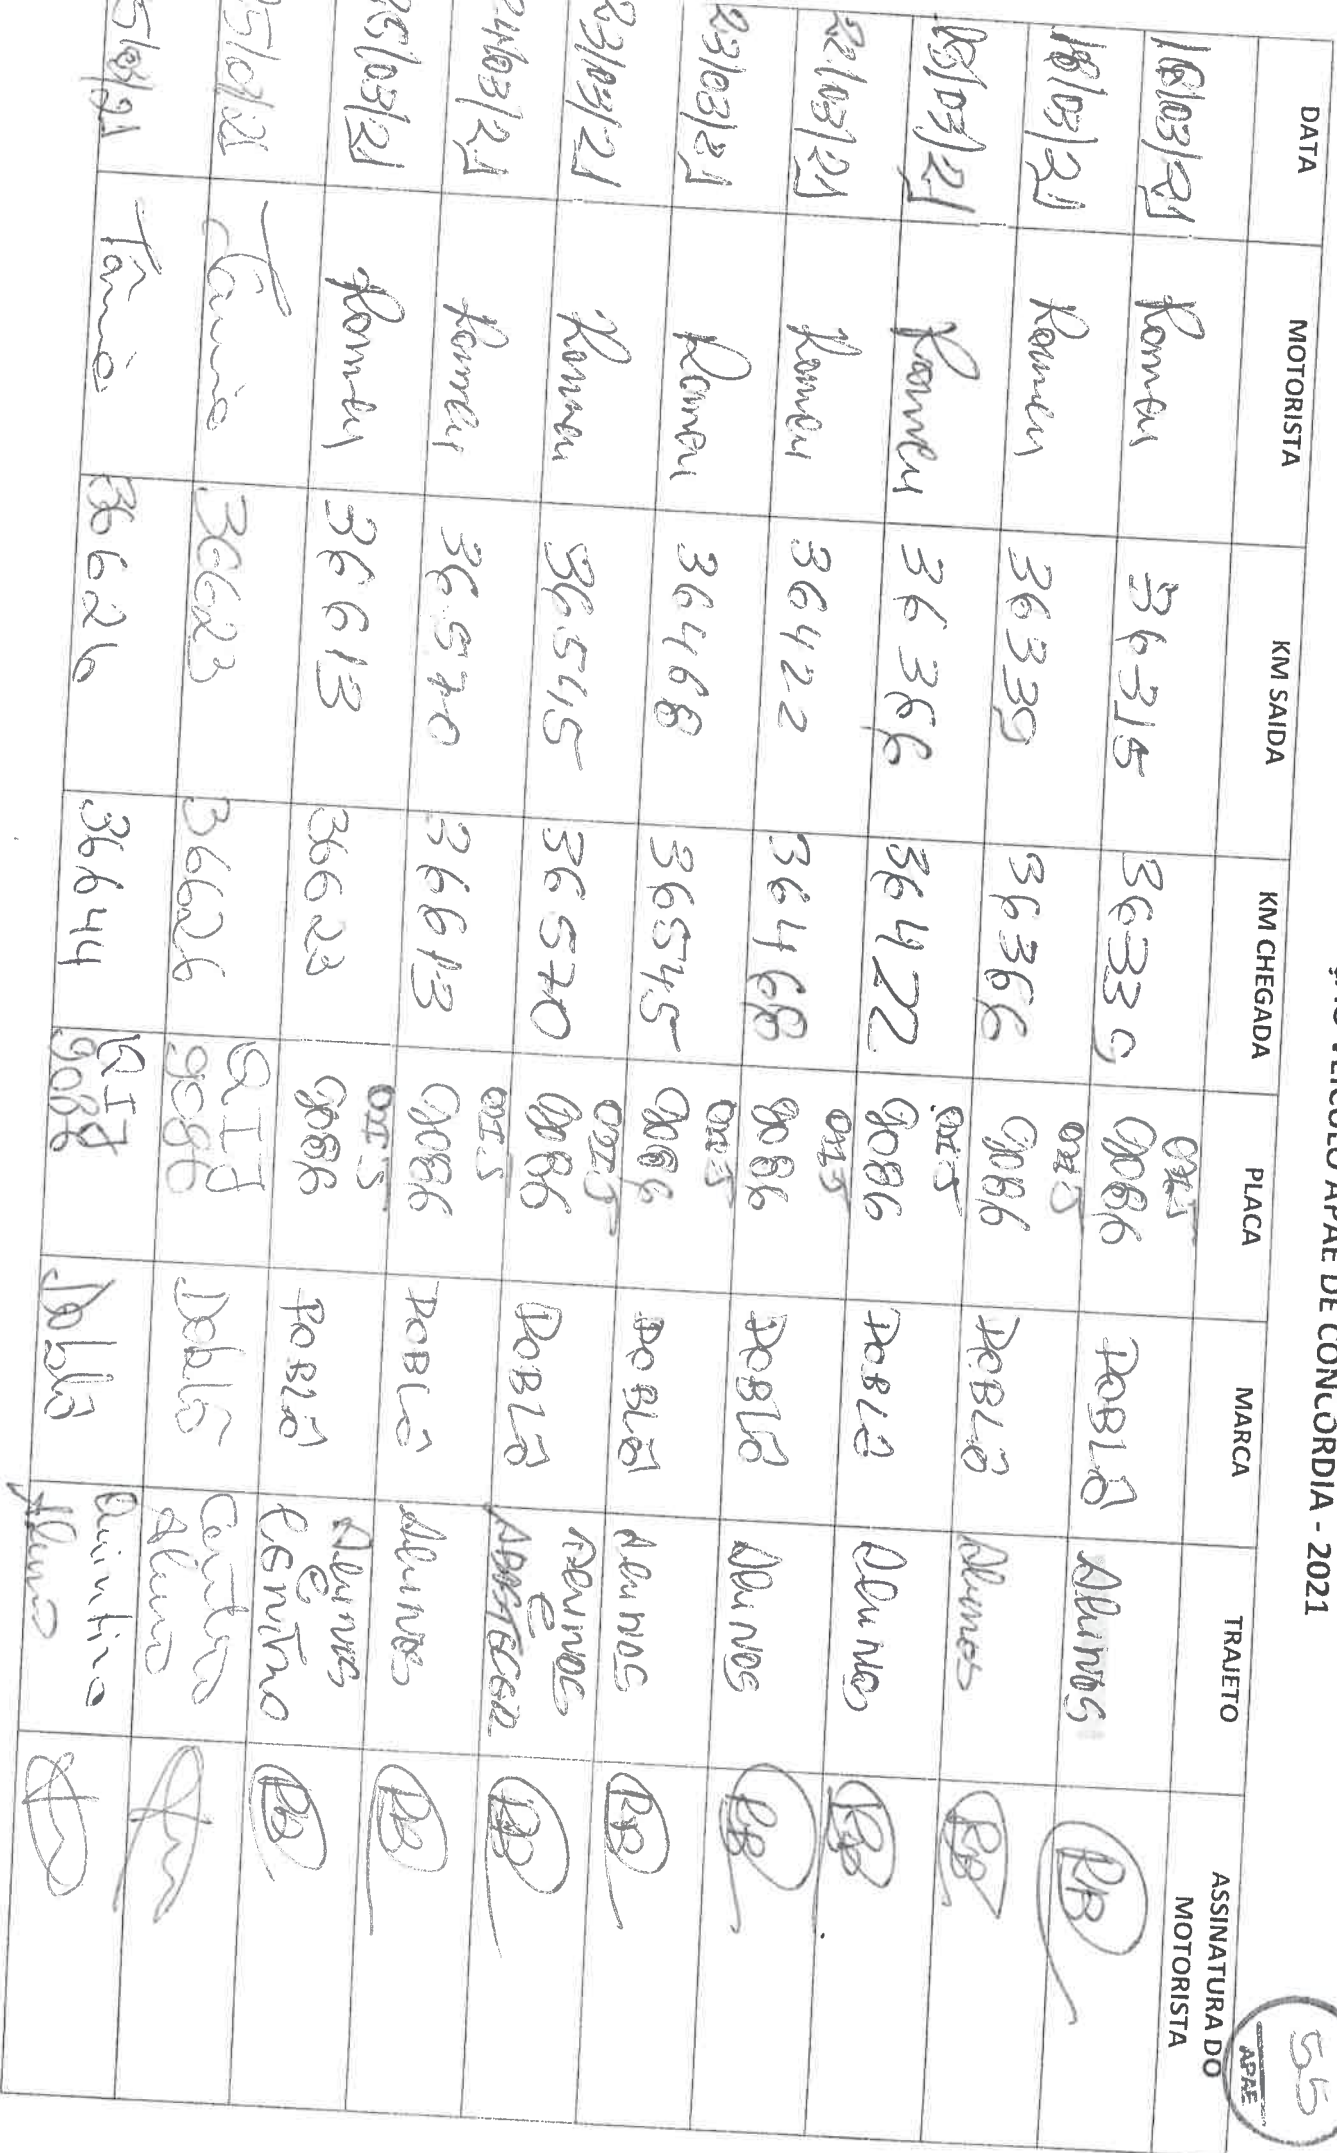 VEÍCULO APAE DE CONCÓRDIA - 2021
55
APAE
DATA MOTORISTA KM SAIDA KM CHEGADA PLACA MARCA TRAJETO ASSINATURA DO MOTORISTA
18/03/21 Romeu 36315 36339 QIJ 9086 DOBLÔ Alunos RB
18/03/21 Romeu 36339 36366 QIJ 9086 DOBLÔ Alunos RB
/03/21 Romeu 36366 36422 QIJ 9086 DOBLÔ Alunos RB
22/03/21 Romeu 36422 36468 QIJ 9086 DOBLÔ Alunos RB
23/03/21 Romeu 36468 36545 QIJ 9086 DOBLÔ Alunos RB
23/03/21 Romeu 36545 36570 QIJ 9086 DOBLÔ Alunos e ABASTECER RB
24/03/21 Romeu 36570 36613 QIJ 9086 DOBLÔ Alunos RB
25/03/21 Romeu 36613 36623 QIJ 9086 DOBLÔ Alunos e CENTRO RB
25/03/21 Tânia 36623 36626 QIJ 9086 Doblô Centro Aluno
25/03/21 Tânia 36626 36644 QIJ 9086 Doblô Quintino Aluno